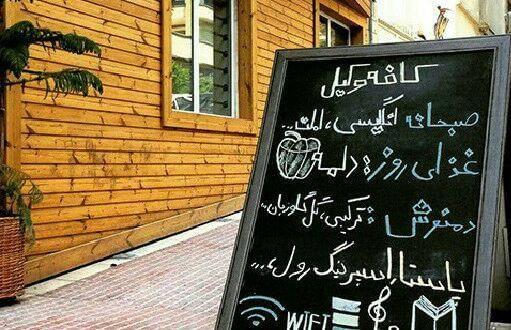 کافه وکیل
صبحانه انگلیسی، املت...
غذای روز: دلمه
دمنوش: ترکیبی، گل گاوزبان...
پاستا، اسپرینگ رول،...
WIFI